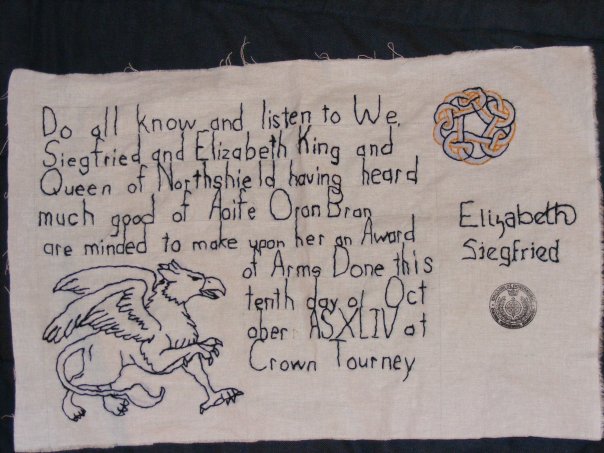 Do all know and listen to We,
Siegfried and Elizabeth King and
Queen of Northshield having heard
much good of Aoife Oran Bran
are minded to make upon her an Award
of Arms Done this
tenth day of Oct
ober ASXLIV at
Crown Tourney
Elizabeth
Siegfried